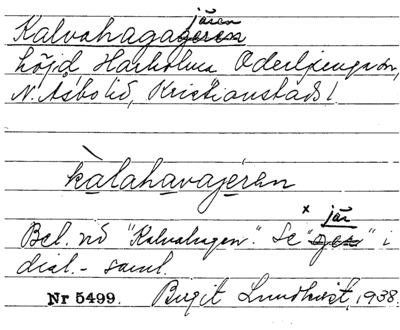 Kalvahagajären
höjd, Harholma, Oderljunga sn,
N. Åsbo hd, Kristianstads l
kàlahavajéren
Bel. vid "Kalvahagen". Se x "jär" i
dial.-saml.
Nr 5499. Birgit Lundkvist, 1938.